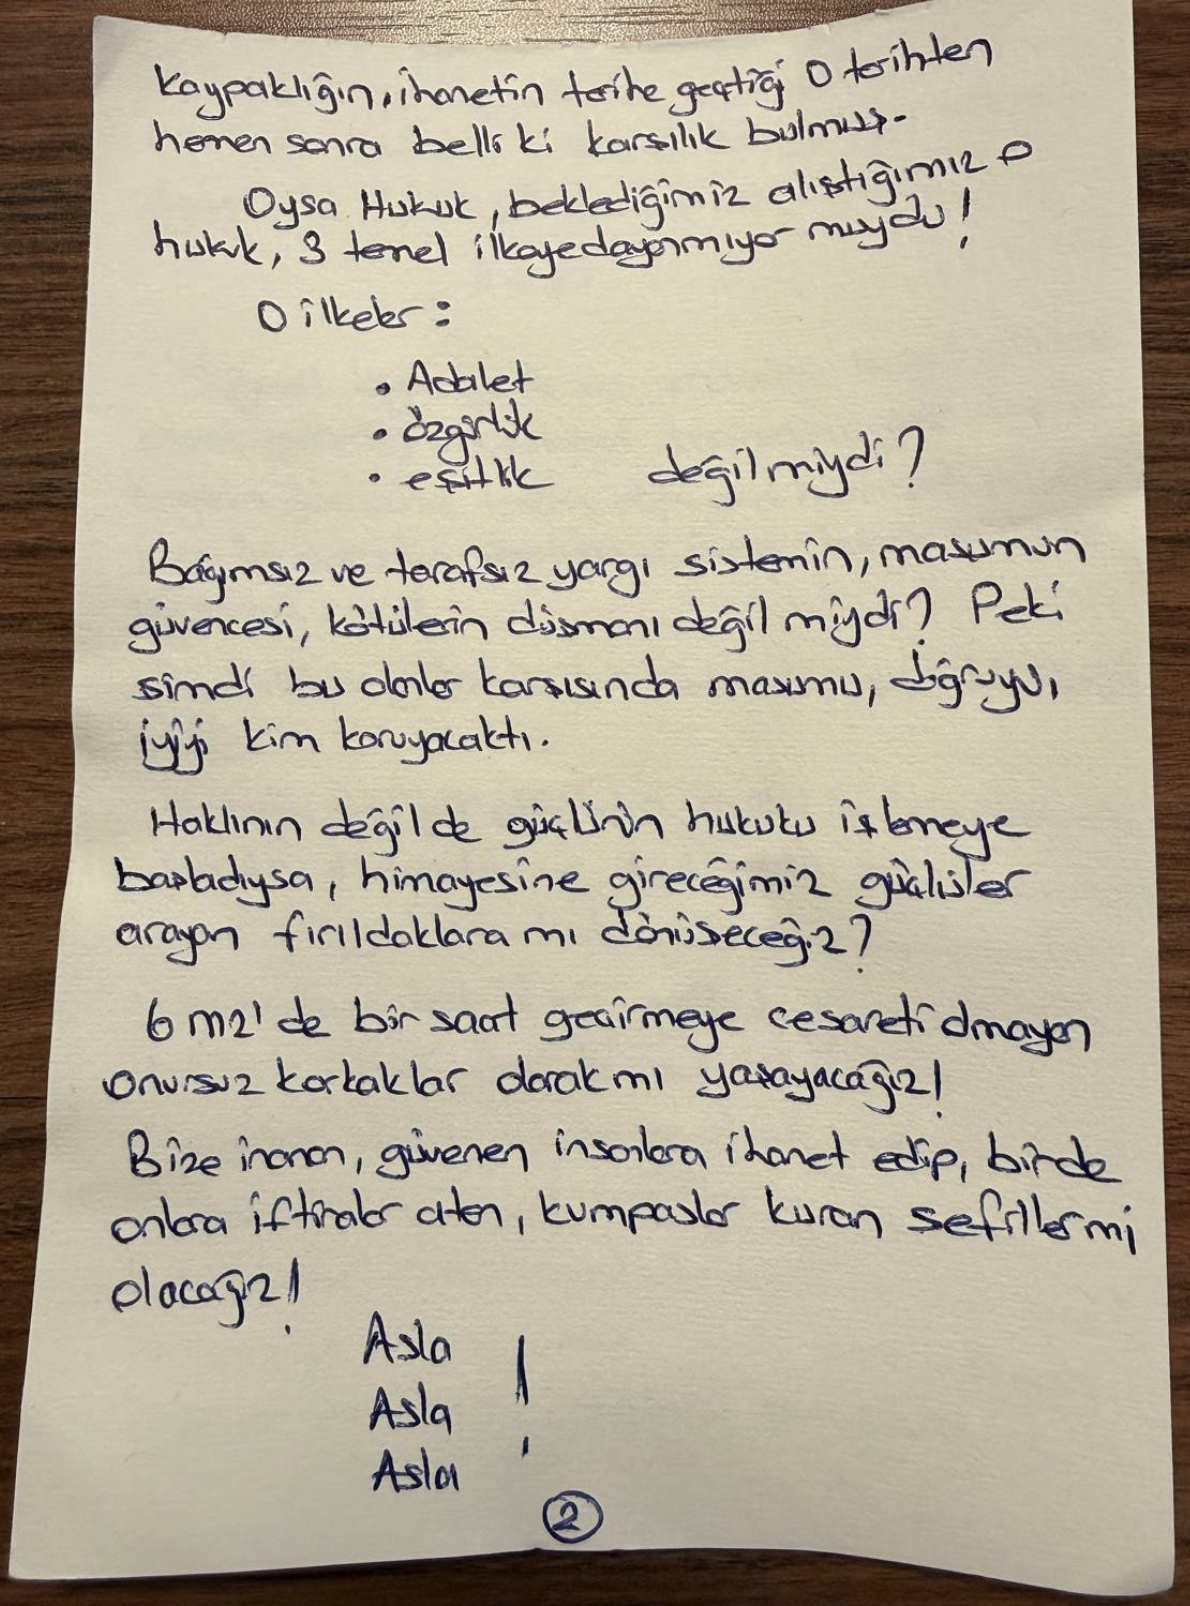 Kaypaklığın, ihanetin tarihe geçtiği O tarihten
hemen sonra belli ki karşılık bulmuş.
Oysa Hukuk, beklediğimiz alıştığımız o
hukuk, 3 temel ilkeye dayanmıyor muydu!
O ilkeler :
• Adalet
• özgürlük
• eşitlik değil miydi?
Bağımsız ve tarafsız yargı sistemin, masumun
güvencesi, kötülerin düşmanı değil miydi? Peki
şimdi bu olanlar karşısında masumu, doğruyu,
iyiyi kim koruyacaktı.
Haklının değil de güçlünün hukuku işlemeye
başladıysa, himayesine gireceğimiz güçlüler
arayan fırıldaklara mı dönüşeceğiz?
6 m2' de bir saat geçirmeye cesareti olmayan
onursuz korkaklar olarak mı yaşayacağız!
Bize inanan, güvenen insanlara ihanet edip, birde
onlara iftiralar atan, kumpaslar kuran sefiller mi
olacağız!
Asla
Asla !
Asla
2